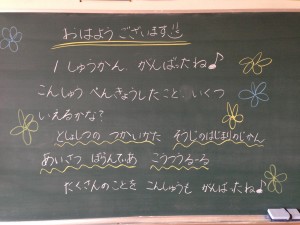 おはようございます
1しゅうかん がんばったね♪
こんしゅう べんきょうしたこと、いくつ
いえるかな?
としょしつの つかいかた そうじのはじまりのじかん
あいさつ ぼらんてぃあ こうつうるーる
たくさんのことを こんしゅうも がんばったね♪